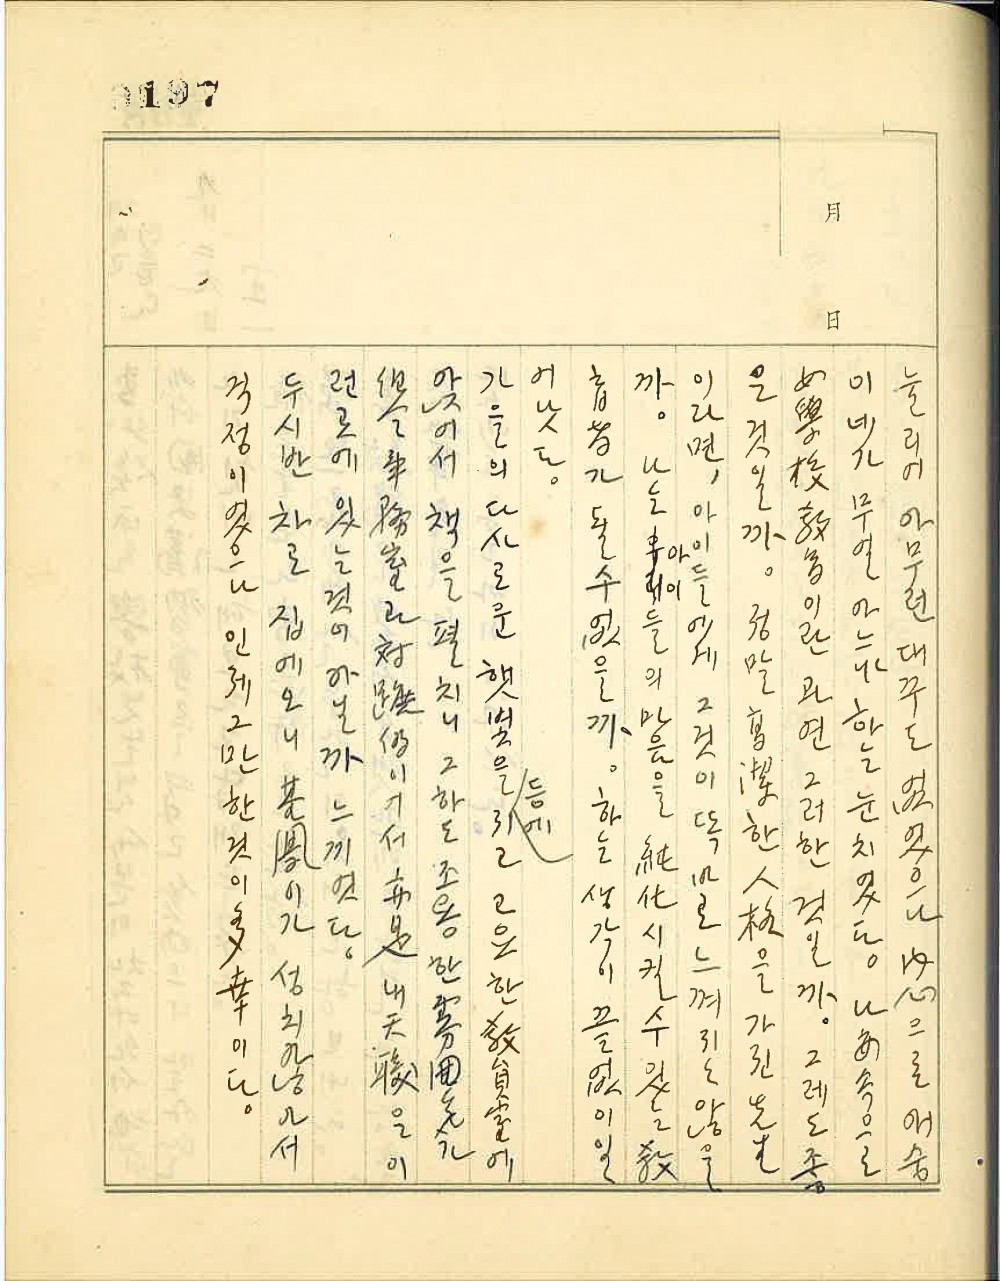 0197
月
日
눌리에 아무런 대꾸도 없었으나 內心으로 애숨
이 네가 무얼 아느냐 하는 눈치였다. 나 亦 속으로
女學校敎育이란 과연 그러한 것일까. 그레도 좋
은 것일까. 정말 高潔한 人格을 가진 先生
이라면, 아이들에게 그것이 똑바로 느껴지는 않을
까. 나는 아이들의 마음을 純化시킬 수 있는 敎
育者가 될 수 없을까. 하는 생각이 끝없이 일
어났다.
가을의 다사로운 햇볓을 등에 지고 고요한 敎員室에
앉어서 책을 펼치니 그하도 조용한 雰囲気가
역시 내 天職은 이
런 곧에 있는것이 아닐까 느끼였다.
두시반 차로 집에오니 基鳳이가 성치않어서
걱정이였으나 인제 그만한것이 多幸이다.